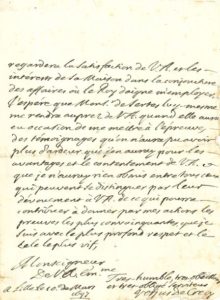 regardera la Satisfaction de V.A. et les
interests de Sa Maison dans la conjoncture
des affaires où le Roy daigne m'employer.
J'espere que Mons.r de luy mesme
me rendra aupres de V.A. quand elle aura
eu occasion de me mettre à l'epreuve,
des témoignages qu'on n'aura pu avoir
plus d'ardeur que j'en auray pour les
avantages et le contentement de V.A.
que je n'auray rien obmis entre tous ceux
qui peuvent se distinguer par leur
devouement à V.A. de ce qui pourra
contribuer à donner par mes actions les
preuves les plus convainquantes que je
suis avec le plus profond respect et le
zele le plus vif,
Monseigneur
De V.A.
Tres humble, tres obeissant
et tres obligé serviteur
A Lille le 10 de Mars
1697